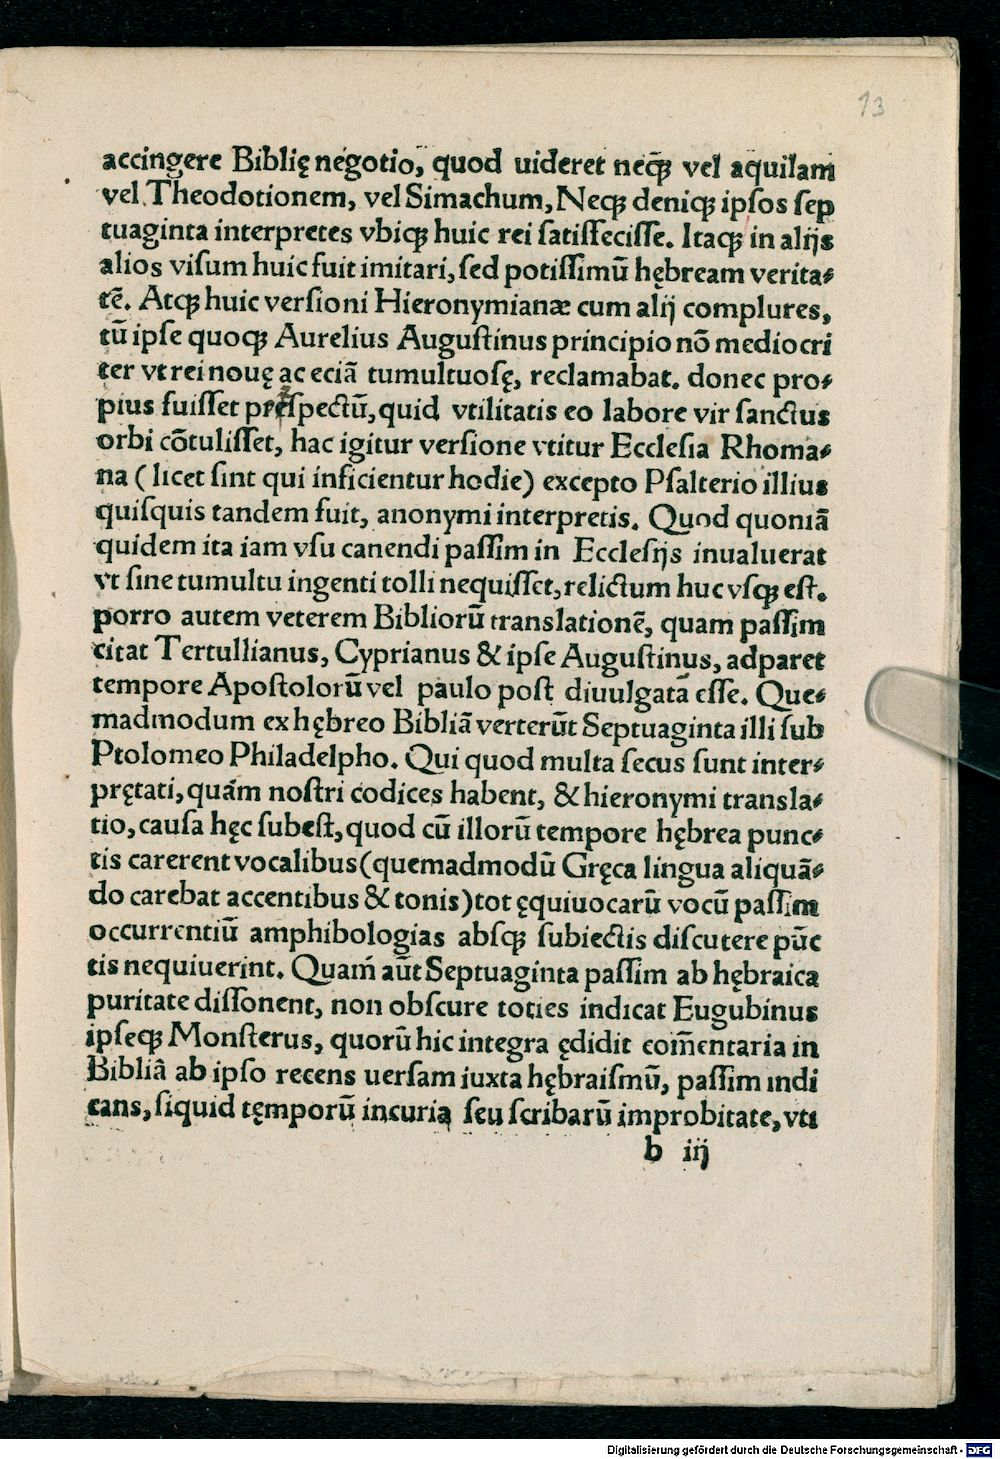 13
accingere Biblię negotio, quod uideret neqꝫ vel aquilam
vel Theodotionem, vel Simachum, Neqꝫ deniqꝫ ipſos ſep
tuaginta interpretes vbiqꝫ huic rei ſatiſfeciſſe. Itaqꝫ in alijs
alios viſum huic fuit imitari, ſed potiſſimū hębream verita⸗
tē. Atqꝫ huic verſioni Hieronymianæ cum alij complures,
tū ipſe quoqꝫ Aurelius Auguſtinus principio nō mediocri
ter vt rei nouę ac eciā tumultuoſę, reclamabat. donec pro⸗
pius fuiſſet ſpectū, quid vtilitatis eo labore vir ſanctus
orbi cōtuliſſet, hac igitur verſione vtitur Eccleſia Rhoma⸗
na ( licet ſint qui inficientur hodie) excepto Pſalterio illius
quiſquis tandem fuit, anonymi interpretis. Quod quoniā
quidem ita iam vſu canendi paſſim in Eccleſijs inualuerat
vt ſine tumultu ingenti tolli nequiſſet, relictum huc vſqꝫ eſt.
porro autem veterem Bibliorū translationē, quam paſſim
citat Tertullianus, Cyprianus & ipſe Auguſtinus, adparet
tempore Apoſtolorū vel paulo poſt diuulgatā eſſe. Que⸗
madmodum ex hębreo Bibliā verterūt Septuaginta illi ſub
Ptolomeo Philadelpho. Qui quod multa ſecus ſunt inter⸗
prętati, quám noſtri codices habent, & hieronymi transla⸗
tio, cauſa hęc ſubeſt, quod cū illorū tempore hębrea punc⸗
tis carerent vocalibus (quemadmodū Gręca lingua aliquā⸗
do carebat accentibus & tonis) tot ęquiuocarū vocū paſſim
occurrentiū amphibologias abſqꝫ ſubiectis diſcutere pūc
tis nequiuerint. Quam̄ aūt Septuaginta paſſim ab hębraica
puritate diſſonent, non obſcure toties indicat Eugubinus
ipſeqꝫ Monſterus, quorū hic integra ędidit com̄entaria in
Bibliā ab ipſo recens uerſam iuxta hębraiſmū, paſſim indi
cans, ſiquid tęmporū incuria ſeu ſcribarū improbitate, vti
b iij
Digitalisierung gefördert durch die Deutsche Forschungsgemeinschaft - DFG